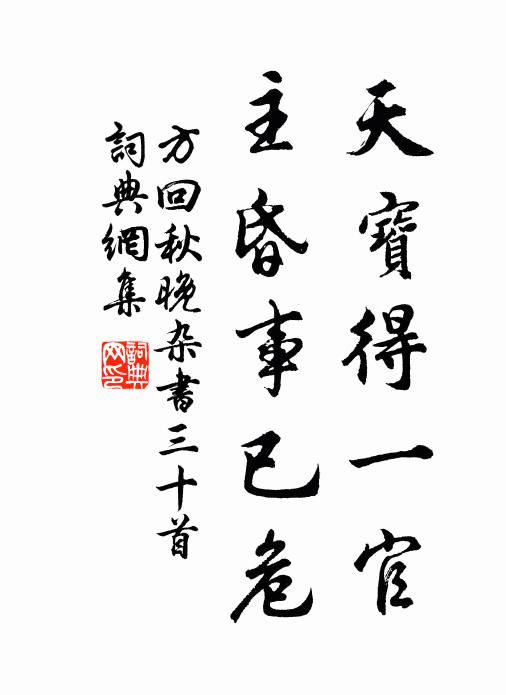 天寶得一官
主昏事已危
方回秋晚杂書三十首
詞典網集
詞典網印